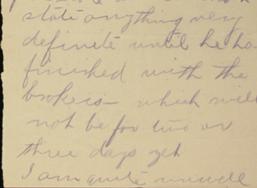 state anything very
definite until he has
finished with the
brokers – which will
not be for two or
three days yet
I am quite